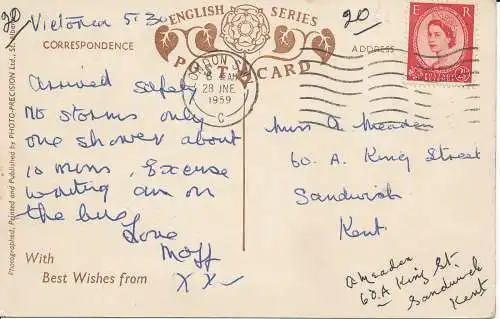 20
Victoria 5.30
ENGLISH SERIES
20
E R
CORRESPONDENCE
POST CARD
ADDRESS
LONDON S.W.
8 AM
28 JNE
1959
C
Arrived safely
No storms only
one shower about
10 mins, Excuse
writing am on
the bus
Love
Moff
X X
With
Best Wishes from
Miss A. Meaden
60. A. King Street
Sandwich
Kent.
A Meaden
60.A King St.
Sandwich
Kent
Photographed, Printed and Published by PHOTO-PRECISION Ltd., St.